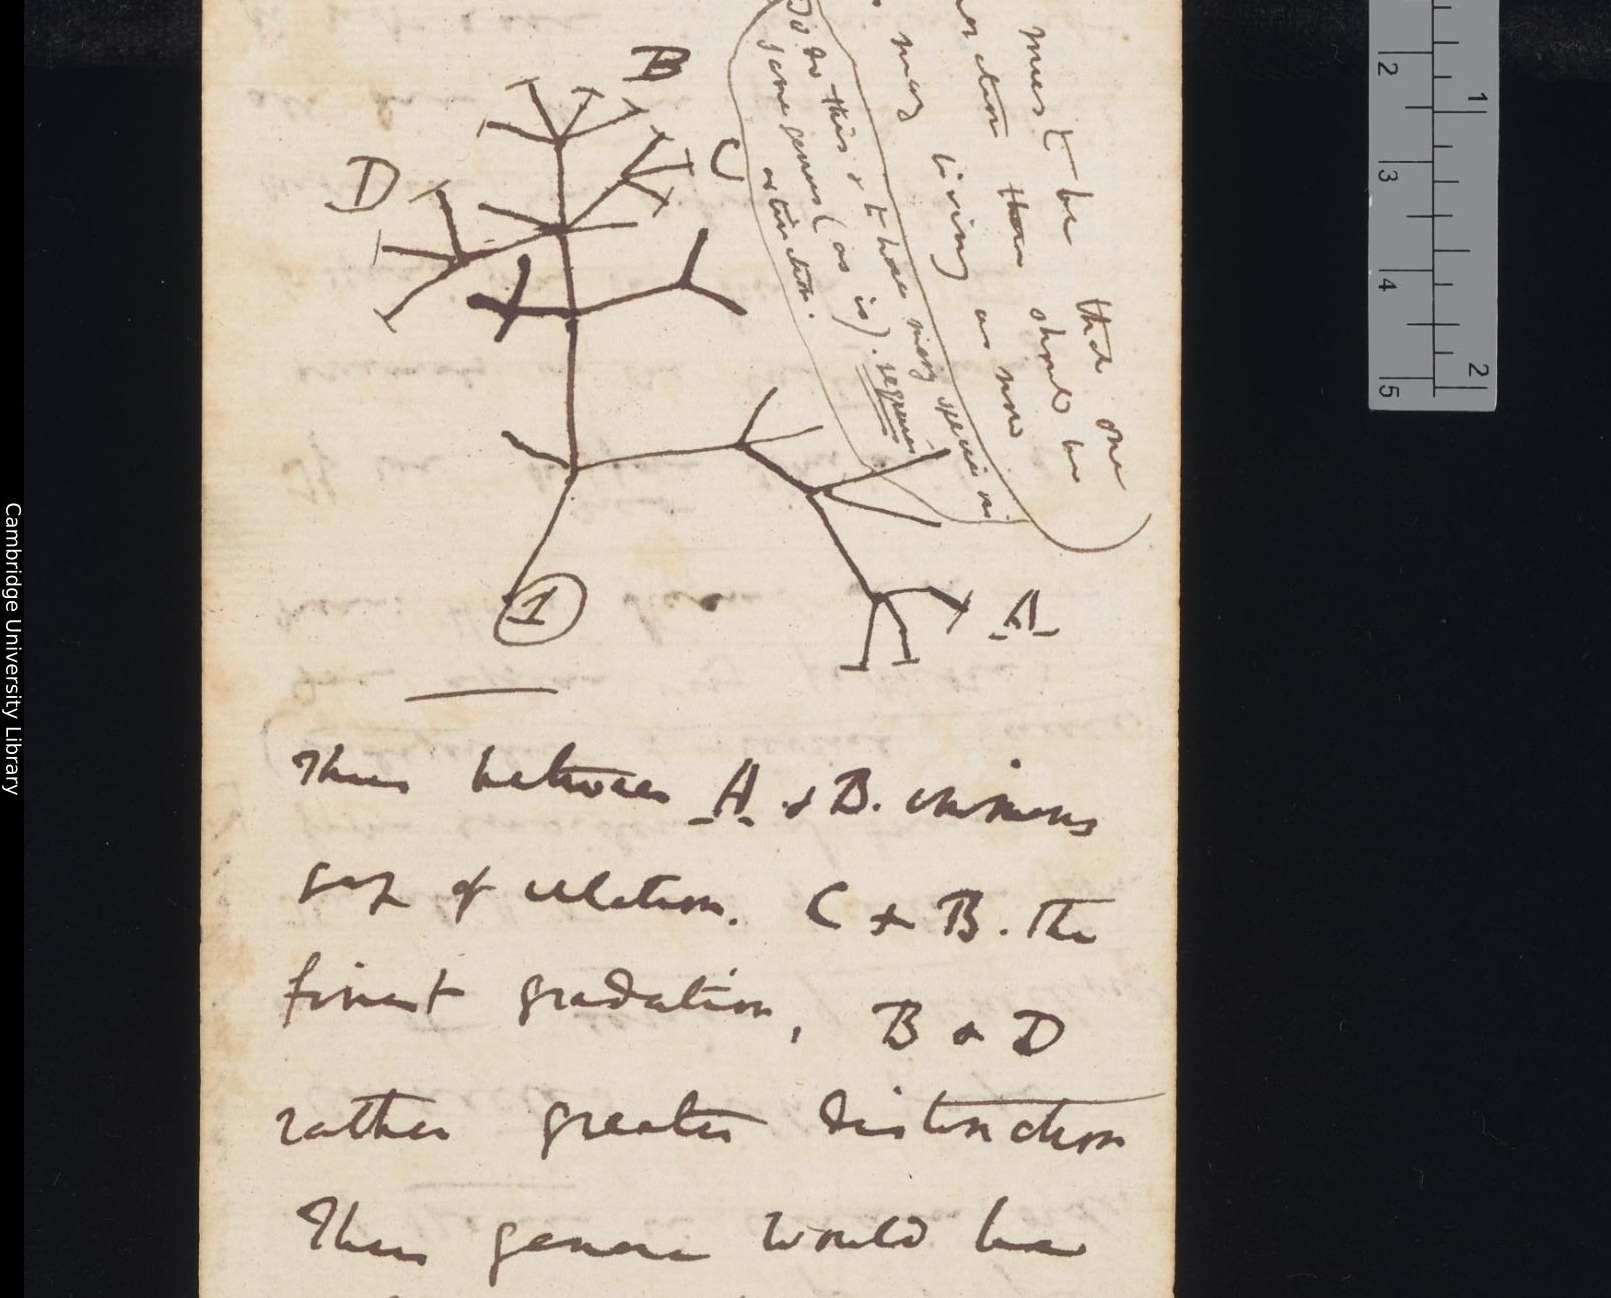 must be that one
ration then should be
may living as now
To do this & to have many species in
same genus (as is). requires
extinction.
B
D
C
A
1
Thus between A & B. immens
gap of relation. C & B. the
finest gradation, B & D
rather greater distinction
Thus genera would be
Cambridge University Library
1
2
2
3
4
5